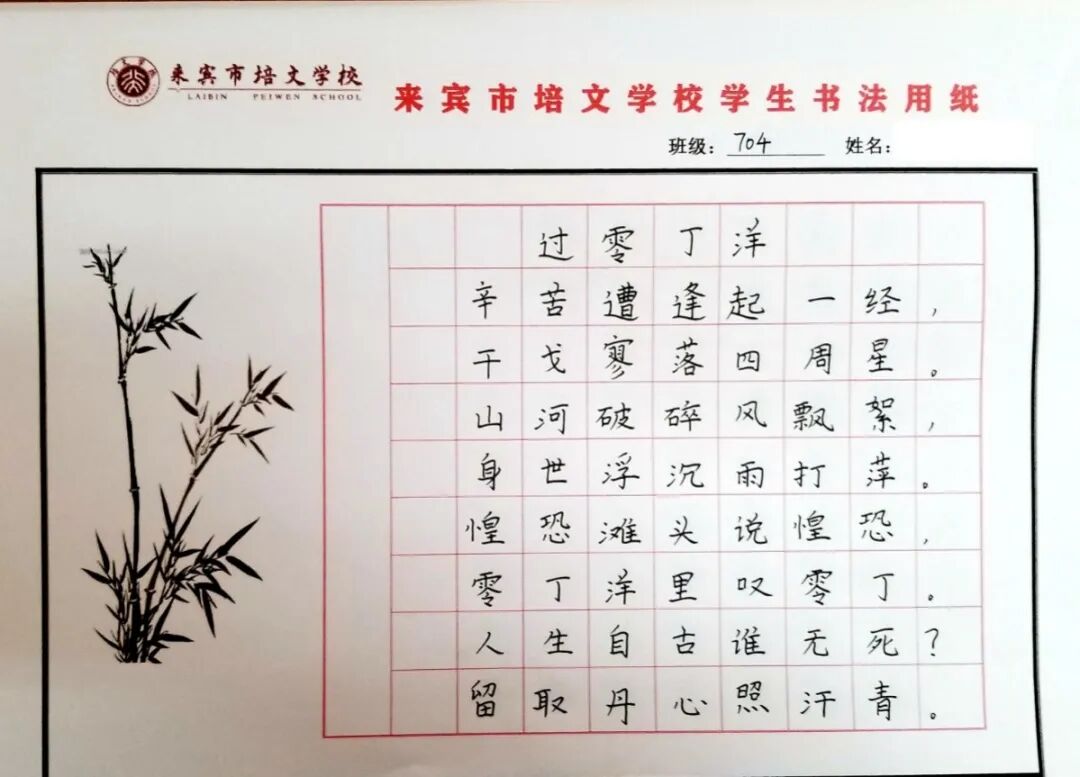 来宾市培文学校
LAIBIN PEIWEN SCHOOL
来宾市培文学校学生书法用纸
班级：704 姓名：
过零丁洋
辛苦遭逢起一经，
干戈寥落四周星。
山河破碎风飘絮，
身世浮沉雨打萍。
惶恐滩头说惶恐，
零丁洋里叹零丁。
人生自古谁无死？
留取丹心照汗青。